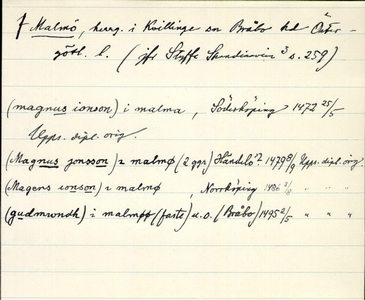 † Malmö, herrg. i Kvillinge sn Bråbo hd Öster-
götl. l. (jfr Styffe Skandinavien³ s. 259)
(magnus ionson) i malma, Söderköping 1472 25/5
Upps. dipl. orig.
(Magnus jonsson) i malmø (2 ggr) Händelö 1479 8/9 Upps. dipl. orig.
(Magens ionson) i malmø, Norrköping 1486 " " "
(gudmundh) i malmøø (faste) u.o. (Bråbo) 1495 2/5 " " "